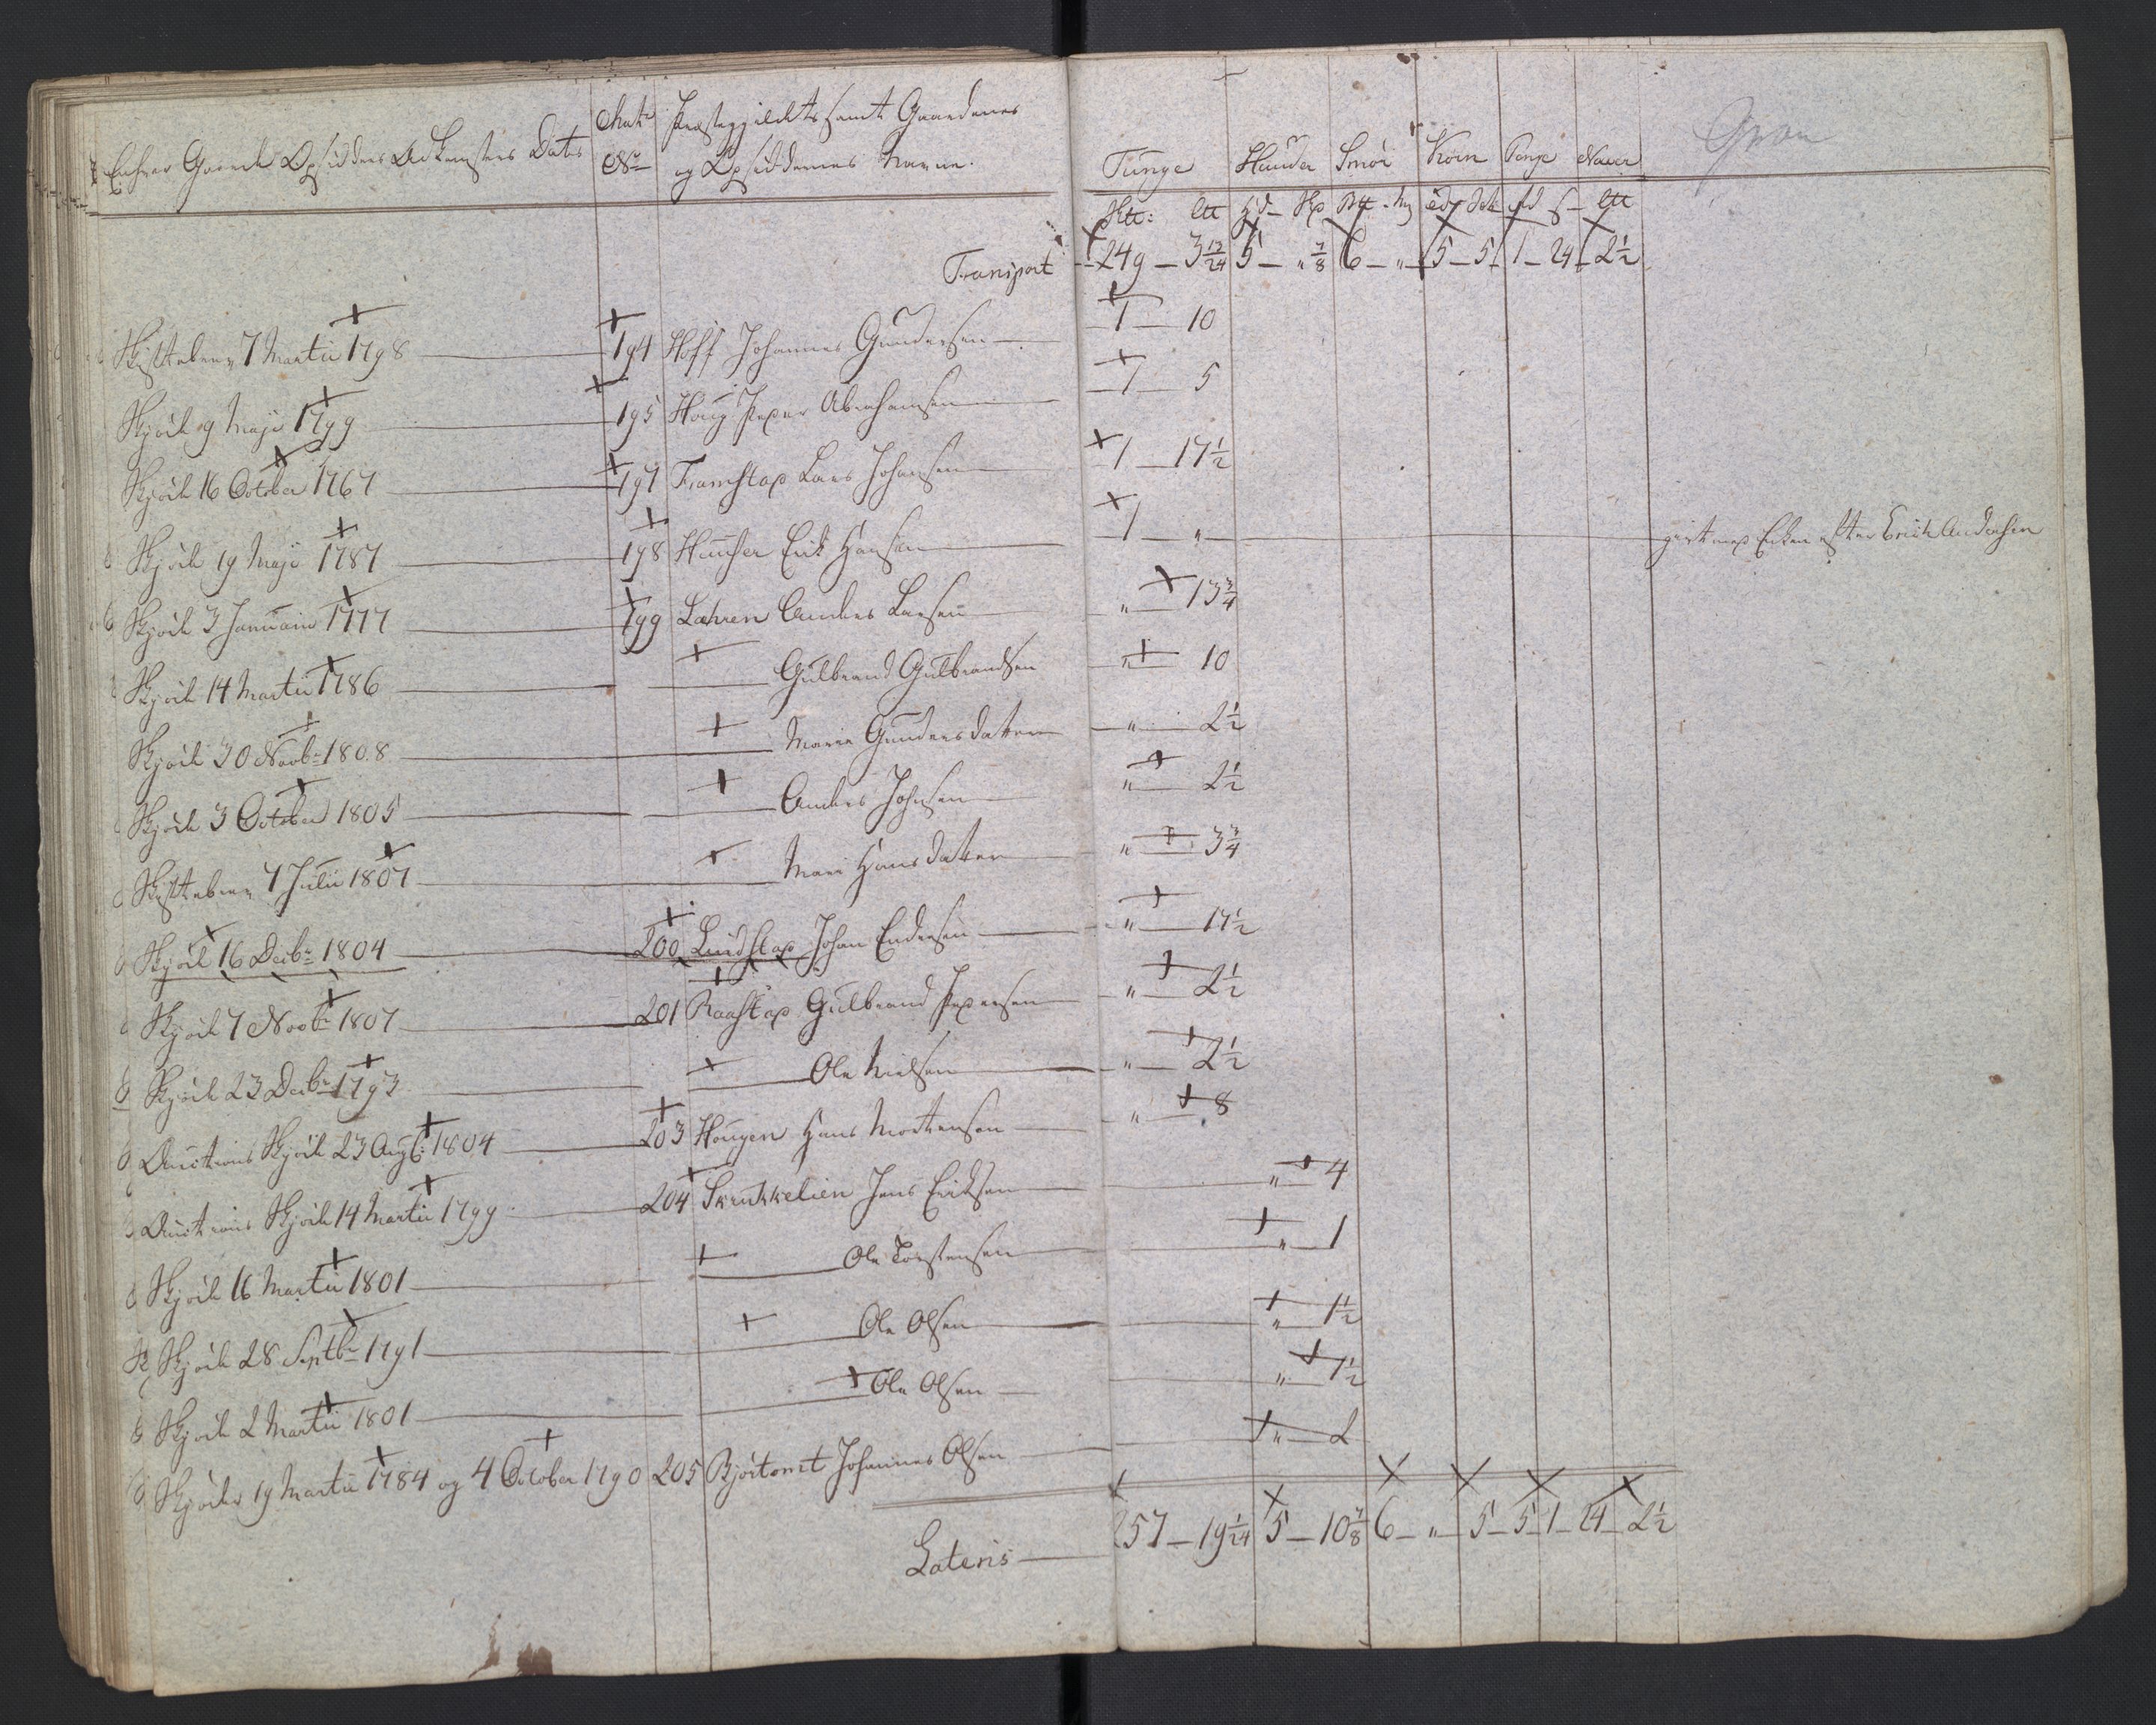 Enhver Gaards Opsidders Adkomsters Dato | Matr No | Præstegjeldets samt Gaardenes og Opsiddernes Navne. | Tunge | Huuder | Smør | Korn | Penge | Naver | Gran
Sktt: Ltt | Hd - Skp | Btt - Mg | Sd | Rd ß | Ltt
Transport 249 - 3 13/24 | 5 - " 7/8 | 6 - " | 5 - 5 | 1 - 24 | 2 1/2
Skiftebrev 7 Martii 1798 194 Hoff Johannes Gundersen 1 10
Skjøde 9 Maji 1799 195 Houg Peder Abrahamsen 1 5
Skjøde 16 October 1767 197 Framstad Lars Johansen 1 17 1/2
Skjøde 19 Maji 1787 198 Erik Hansen 1 " gift med Enken efter Erich Andersen
Skjøde 3 Januarii 1777 199 Lahren Anders Larsen " 13 3/4
Skjøde 14 Martii 1786 Gulbrand Gulbrandsen " 10
Skjøde 30 Novbr 1808 Marie Gundersdatter " 2 1/2
Skjøde 3 October 1805 Anders Johnsen " 2 1/2
Skiftebrev 7 Julii 1807 Mari Hansdatter " 3 3/4
Skjøde 16 Decbr 1804 200 Lindstad Johan Endresen " 17 1/2
Skjøde 7 Novbr 1807 201 Raastad Gulbrand Pedersen " 2 1/2
Skjøde 23 Decbr 1793 Ole Nielsen " 2 1/2
Auctions Skjøde 23 Aug: 1804 203 Hougen Hans Mortensen " 8
Auctions Skjøde 14 Martii 1799 204 Skrukkelien Jens Eriksen " 4
Skjøde 16 Martii 1801 Ole Torstensen " 1
Skjøde 28 Septbr 1791 Ole Olsen " 1 1/2
Skjøde 2 Martii 1801 Ole Olsen " 1 1/2
Skjøder 19 Martii 1784 og 4 October 1790 205 Bjørtomt Johannes Olsen " 2
Lateris 257 - 19 1/24 | 5 - 10 7/8 | 6 - " | 5 - 5 | 1 - 24 | 2 1/2